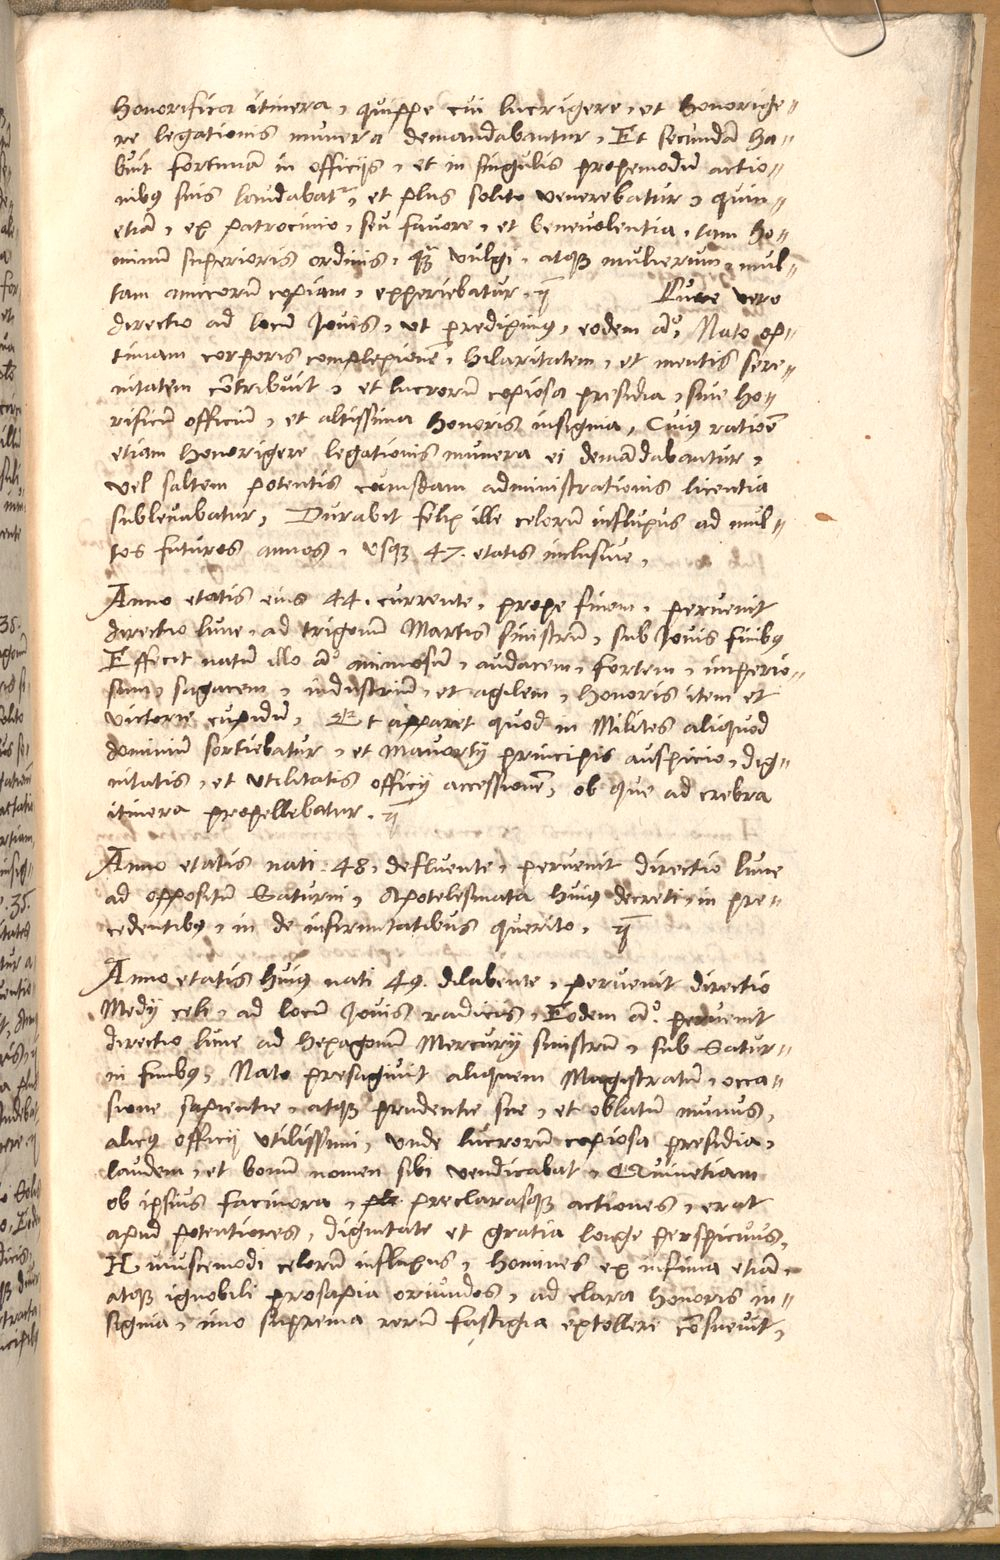 honorifica itinera, quippe cui lucrigere, et honorige=
re legationis munera demandabantur, Et secundã ha=
buit fortunã in officijs, et in singulis propemodũ actio=
nibꝰ suis laudabatʳ, et plus solito venerebatur, quin=
etiã, ex patrocinio, seu favore, et benevolentia, tam ho=
minũ superioris ordinis, qᷓ vulgi, atqꝫ mulierum, mul=
tam amicorũ copiam, experiebatur. Lune vero
directio ad locũ Jouis, vt prediximꝰ, eodem aõ, Nato op=
timam corporis complexionẽ, hilaritatem, et mentis sere=
nitatem cõtribuit, et lucrorũ copiosa presidia, siue ho=
rificũ officium, et altissima honoris insignia, Cuiꝰ ratiõe
etiam honorigere legationis munera ei demãdabantur,
vel saltem potentis cuiusdam administrationis licentia
sublevabatur, Durabit felix ille celorũ influxus ad mul=
tos futuros annos, vsqꝫ 47. etatis inclusiue,
Anno etatis eius 44. currente, prope finem, peruenit
directio lune, ad trigonũ Martis sinistrũ, sub Jouis finibꝰ
Efficit natũ illo aõ animosũ, audacem, fortem, imperio=
sum, sagacem, industriũ, et agilem, honoris item et
victorie cupidũ, Et apparet quod in Milites aliquod
dominiũ sortiebatur, et Mauortij principis auspicio, dig=
nitatis, et vtilitatis officij accessionẽ, ob que ad crebra
itinera propellebatur.
Anno etatis nati 48, defluente, peruenit directio lune
ad oppositũ Saturni, Apotelesmata huiꝰ decreti, in pre=
cedentibꝰ, in de infirmitatibus querito,
Anno etatis huiꝰ nati 49. dilabente, peruenit directio
Medij celi, ad locũ Jouis radicis, Eodem aõ. peruenit
directio lune ad hexagonũ Mercurij sinistrũ, sub Satur=
ni finibꝰ, Nato presagiuit aliquem Magistratũ, occa=
sione sapientie, atqꝫ prudentie sue, et oblatũ munus,
alicꝰ officij vtilissimi, vnde lucrorũ copiosa presidia,
laudem, et bonũ nomen sibi vendicabat, Quinetiam
ob ipsius facinora, preclarasqꝫ actiones, erat
apud potentiores, dignitate et gratia longe perspicuus,
Huiuscemodi celorũ influxus, homines ex infima etiã,
atqꝫ ignobili prosapia oriũdos, ad clara honoris in=
signia, imo suprema rerũ fastigia extollere cõsueuit,